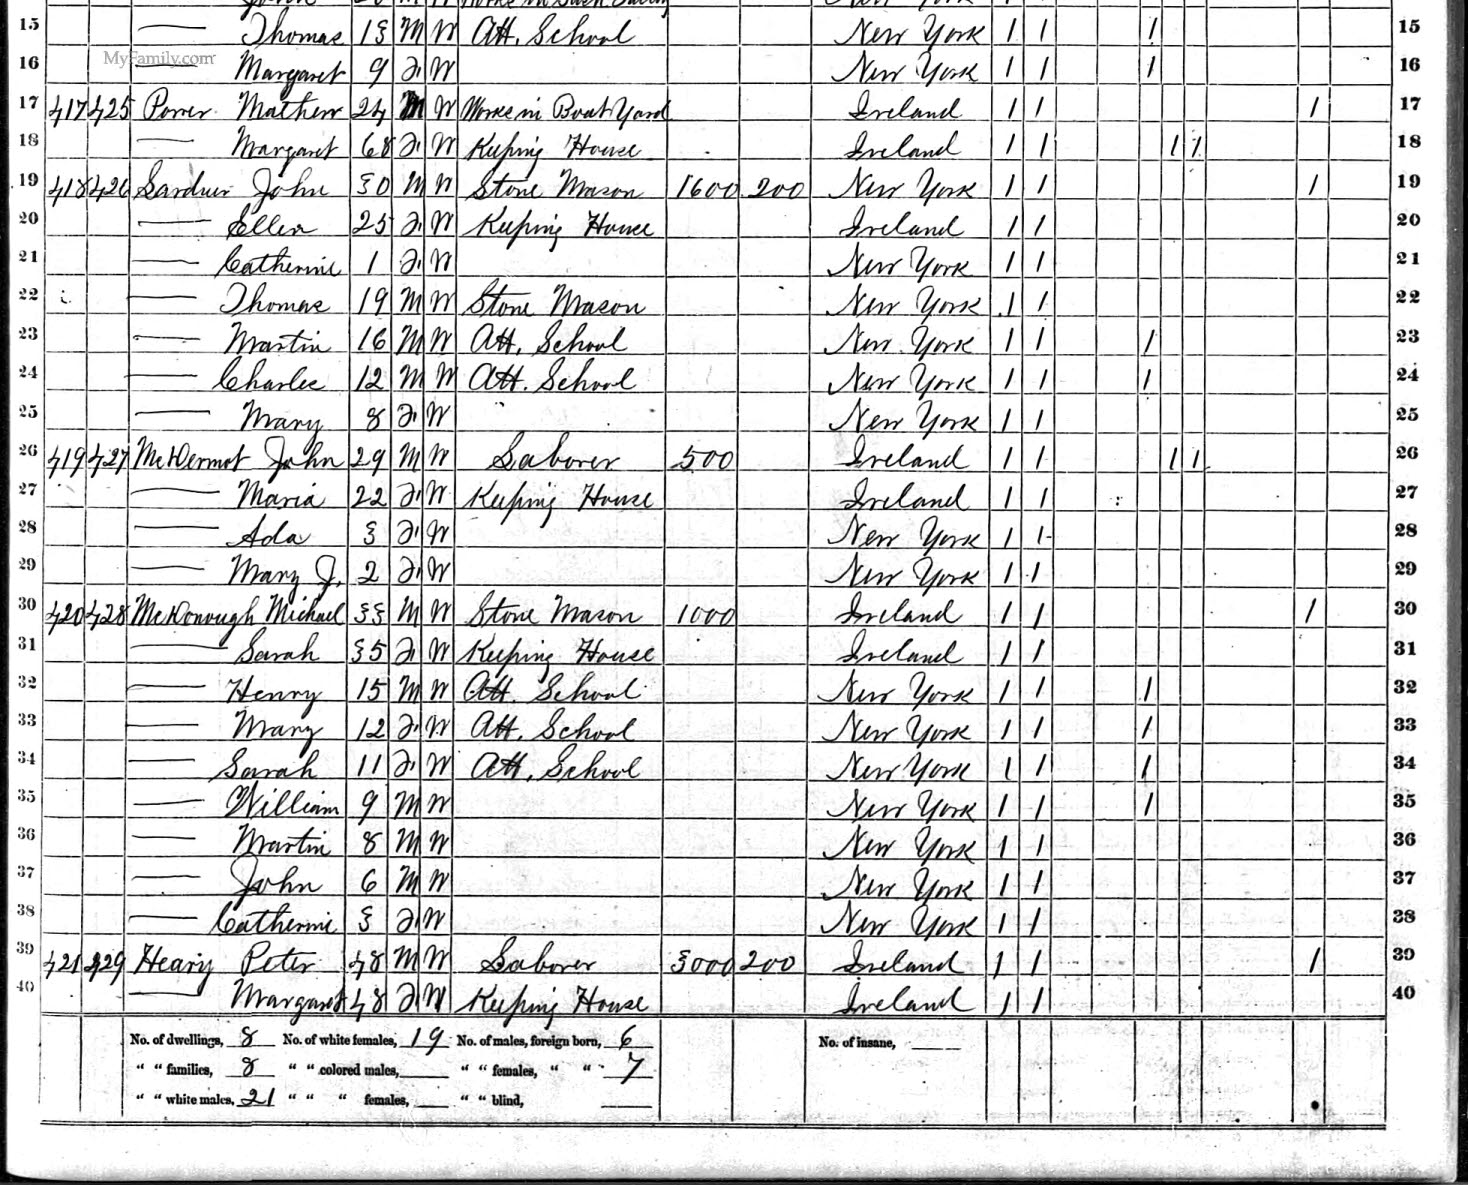 15 — Thomas 13 M W Att. School New York 1 1 1 15
MyFamily.com
16 — Margaret 9 F W New York 1 1 1 16
17 417 425 Power Mathew 24 M W Works in Boat Yard Ireland 1 1 1 17
18 — Margaret 68 F W Keeping House Ireland 1 1 1 1 18
19 418 426 John 30 M W Stone Mason 1600 200 New York 1 1 1 19
20 — Ellen 25 F W Keeping House Ireland 1 1 20
21 — Catherine 1 F W New York 1 1 21
22 — Thomas 19 M W Stone Mason New York 1 1 22
23 — Martin 16 M W Att. School New York 1 1 1 23
24 — Charles 12 M W Att. School New York 1 1 1 24
25 — Mary 8 F W New York 1 1 25
26 419 427 McDermot John 29 M W Laborer 500 Ireland 1 1 1 1 26
27 — Maria 22 F W Keeping House Ireland 1 1 27
28 — Ada 3 F W New York 1 1 28
29 — Mary J. 2 F W New York 1 1 29
30 420 428 McDonough Michael 33 M W Stone Mason 1000 Ireland 1 1 1 30
31 — Sarah 35 F W Keeping House Ireland 1 1 31
32 — Henry 15 M W Att. School New York 1 1 1 32
33 — Mary 12 F W Att. School New York 1 1 1 33
34 — Sarah 11 F W Att. School New York 1 1 1 34
35 — William 9 M W New York 1 1 1 35
36 — Martin 8 M W New York 1 1 36
37 — John 6 M W New York 1 1 37
38 — Catherine 3 F W New York 1 1 38
39 421 429 Heary Peter 48 M W Laborer 3000 200 Ireland 1 1 1 39
40 — Margaret 48 F W Keeping House Ireland 1 1 40
No. of dwellings, 8 No. of white females, 19 No. of males, foreign born, 6 No. of insane,
" " families, 8 " " colored males, " " females, " " 7
" " white males, 21 " " " females, " " blind,